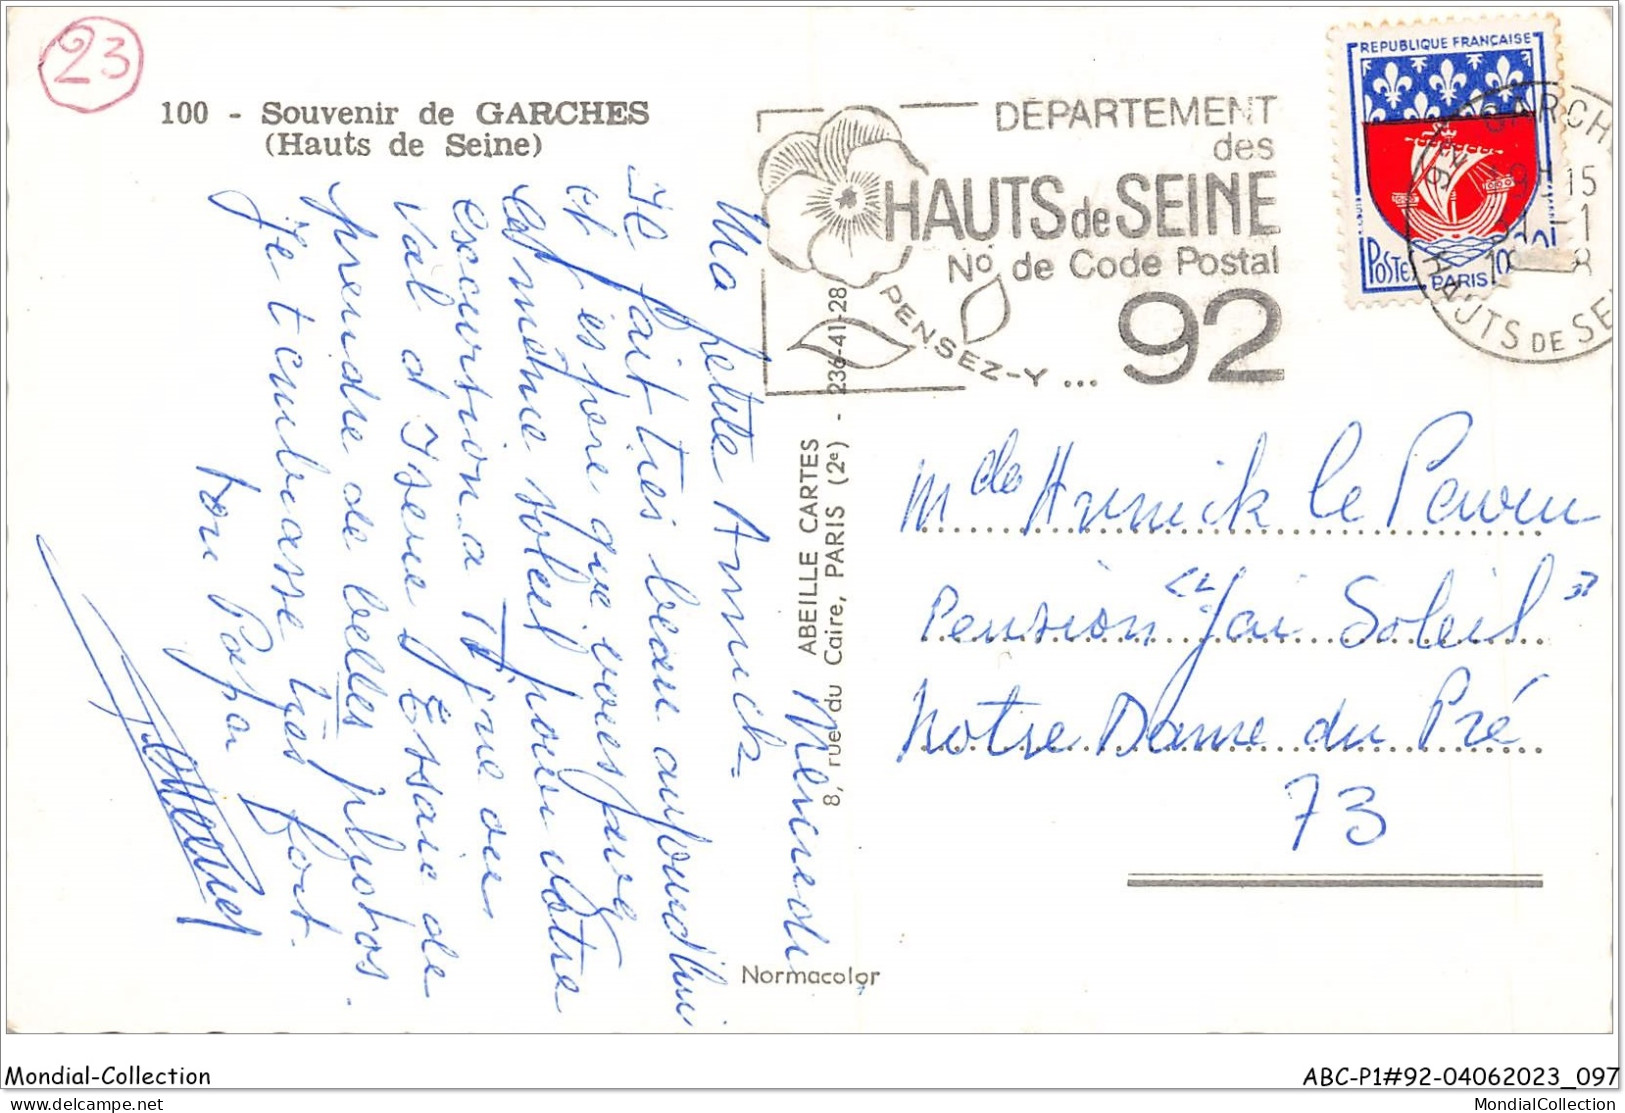 23
100 - Souvenir de GARCHES
(Hauts de Seine)
DEPARTEMENT
des
HAUTS de SEINE
No de Code Postal
92
PENSEZ-Y ...
REPUBLIQUE FRANÇAISE
POSTES
PARIS
GARCHE
HAUTS DE SE
Mercredi
Ma petite Annick-
Il fait très beau aujourd'hui
et j'espère que vous avez
le même soleil pour votre
excursion a Tigne ou
Val d'Isère J'Essaie de
prendre de belles photos.
Je t'embrasse très fort.
ton Papa
ABEILLE CARTES
8, rue du Caire, PARIS (2e) - 236-41-28
Normacolor
Mdelle Annick le
Pension "J'ai Soleil"
Notre Dame du Pré
73
Mondial-Collection
ABC-P1#92-04062023_097
www.delcampe.net
MondialCollection